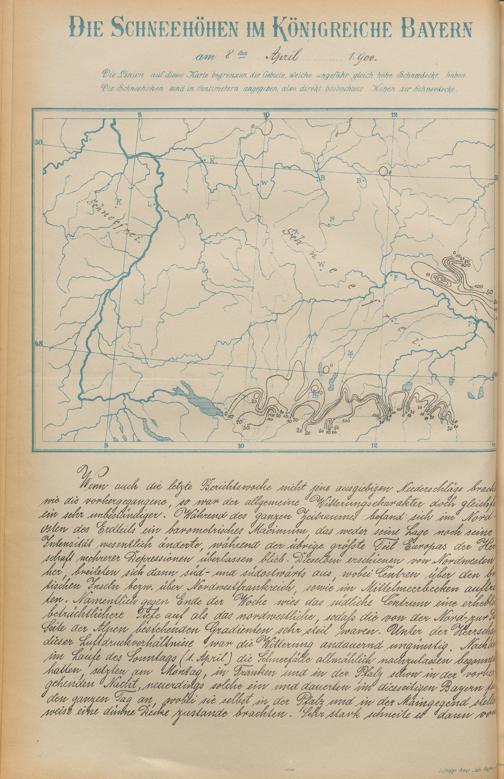 DIE SCHNEEHÖHEN IM KÖNIGREICHE BAYERN
am 8ten April 1900.
Die Linien auf dieser Karte begrenzen die Gebiete, welche ungefähr gleich hohe Schneedecke haben.
Die Schneehöhen sind in Centimetern angegeben, also direkt beobachtete Höhen der Schneedecke.
8 10 12
50
Schneefrei.
Schneefrei.
48
8 10 12
Wenn auch die letzte Berichtswoche nicht jene ausgiebigen Niederschläge brach
wie die vorhergegangene, so war der allgemeine Witterungscharakter doch gleichf
ein sehr unbeständiger. Während des ganzen Zeitraums befand sich im Nord
osten des Erdteils ein barometrisches Maximum, das weder seine Lage noch seine
Intensität wesentlich änderte, während der übrige größte Teil Europas der Her
schaft mehrerer Depressionen überlassen blieb. Dieselben erschienen von Nordwesten
her, breiteten sich dann süd- und südostwärts aus, wobei Centren über den b
tischen Inseln bezw. über Nordwestfrankreich, sowie im Mittelmeerbecken auftra
ten. Namentlich gegen Ende der Woche wies das südliche Centrum eine erhebl
beträchtlichere Tiefe auf als das nordwestliche, sodaß die von der Nord- zur S
Seite der Alpen bestehenden Gradienten sehr steil waren. Unter der Herrscha
dieser Luftdruckverhältnisse war die Witterung andauernd ungünstig. Nach
im Laufe des Sonntags (1. April) die Schneefälle allmählich nachzulassen begann
hatten, setzten am Montag, in Franken und in der Pfalz schon in der vorher
gehenden Nacht, neuerdings solche ein und dauerten im diesseitigen Bayern f
den ganzen Tag an, wobei sie selbst in der Pfalz und in der Maingegend stell
weise eine dünne Decke zustande brachten. Sehr stark schneite es dann